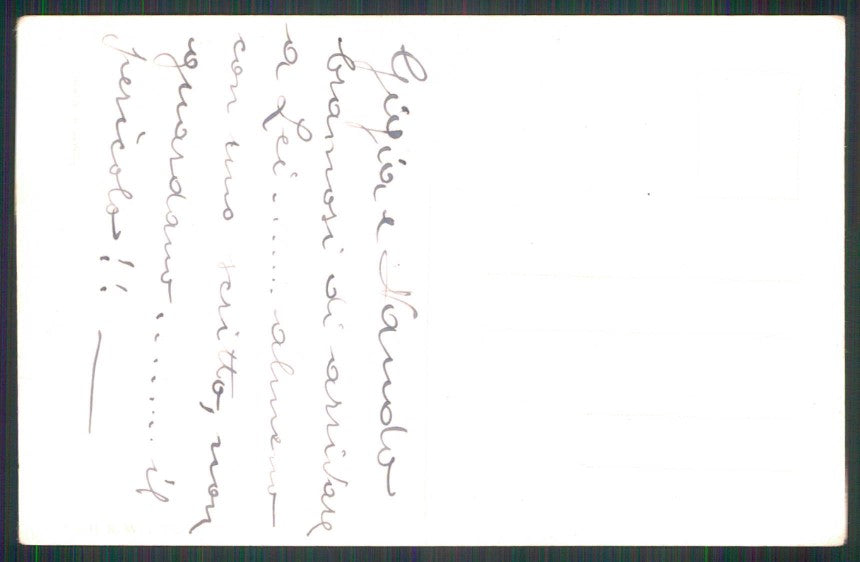 Gigia e Nando
bramosi di arrivare
a Lei....... almeno
con uno scritto, non
guardano....... il
pericolo!!